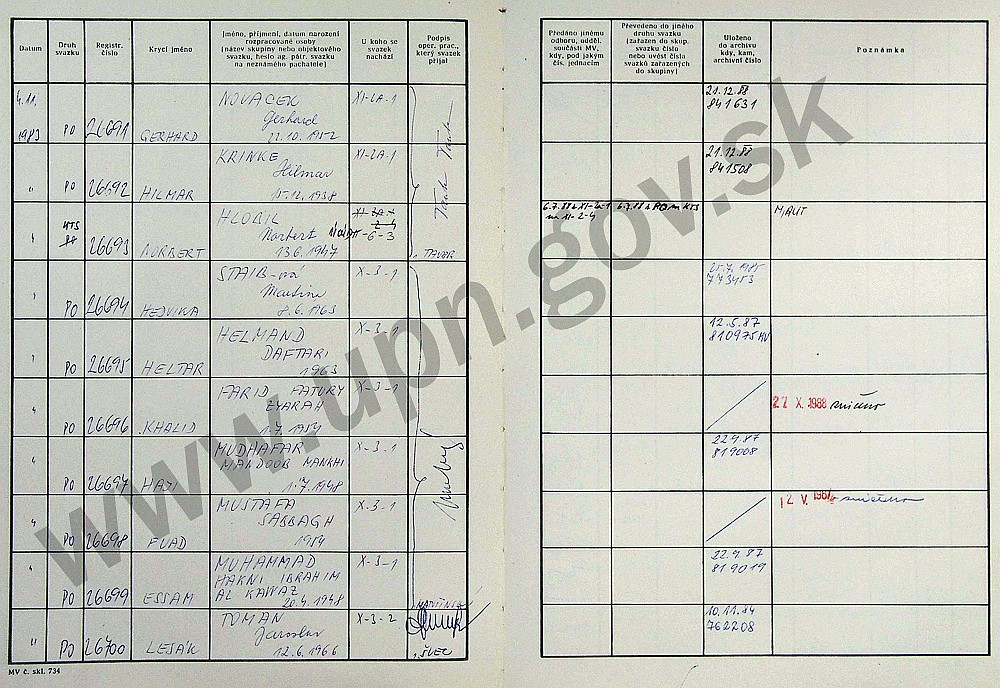 Datum
Druh
svazku
Registr.
číslo
Krycí jméno
Jméno, příjmení, datum narození
rozpracované osoby
(název skupiny nebo objektového
svazku, heslo ag. pátr. svazku
na neznámého pachatele)
U koho se
svazek
nachází
Podpis
oper. prac.,
který svazek
přijal
Předáno jinému
odboru, odděl.
součásti MV,
kdy, pod jakým
čís. jednacím
Převedeno do jiného
druhu svazku
(zařazen do skup.
svazku číslo
nebo uvést čísla
svazků zařazených
do skupiny)
Uloženo
do archivu
kdy, kam,
archivní číslo
Poznámka
4.11.
1983 PO 26691 GERHARD
NOVACEK
Gerhard
22.10.1952
XI-2A-1
21.12.88
841631
" PO 26692 HILMAR
KRINKE
Hilmar
15.12.1938
XI-2A-1
21.12.88
841508
KTS
26693 NORBERT
HLOBIL
Norbert
13.6.1947
-6-3
TAUER
6.7.88 XI-2A-1
na XI-2-4
6.7.88 KTS
PO 26694 HEDVIKA
STAIB-ová
Martina
8.6.1963
X-3-1
25.7.1985
773453
PO 26695 HELTAR
HELMAND
DAFTARI
1963
X-3-1
12.5.87
810975 MV
PO 26696 KHALID
FARID FATURY
ZYARAH
1.7.1954
X-3-1
27 X. 1988 zničeno
PO 26697 HAYI
MUDHAFAR
MANDOOB MANKHI
1.7.1948
X-3-1
22.9.87
819008
PO 26698 FUAD
MUSTAFA
SABBAGH
1954
X-3-1
PO 26699 ESSAM
MUHAMMAD
HAKNI IBRAHIM
AL KAWAZ
20.4.1948
X-3-1
22.9.87
819019
" PO 26700 LESAK
TOMAN
Jaroslav
12.6.1966
X-3-2
ŠVEC
10.11.84
762208
MV č. skl. 734
www.upn.gov.sk